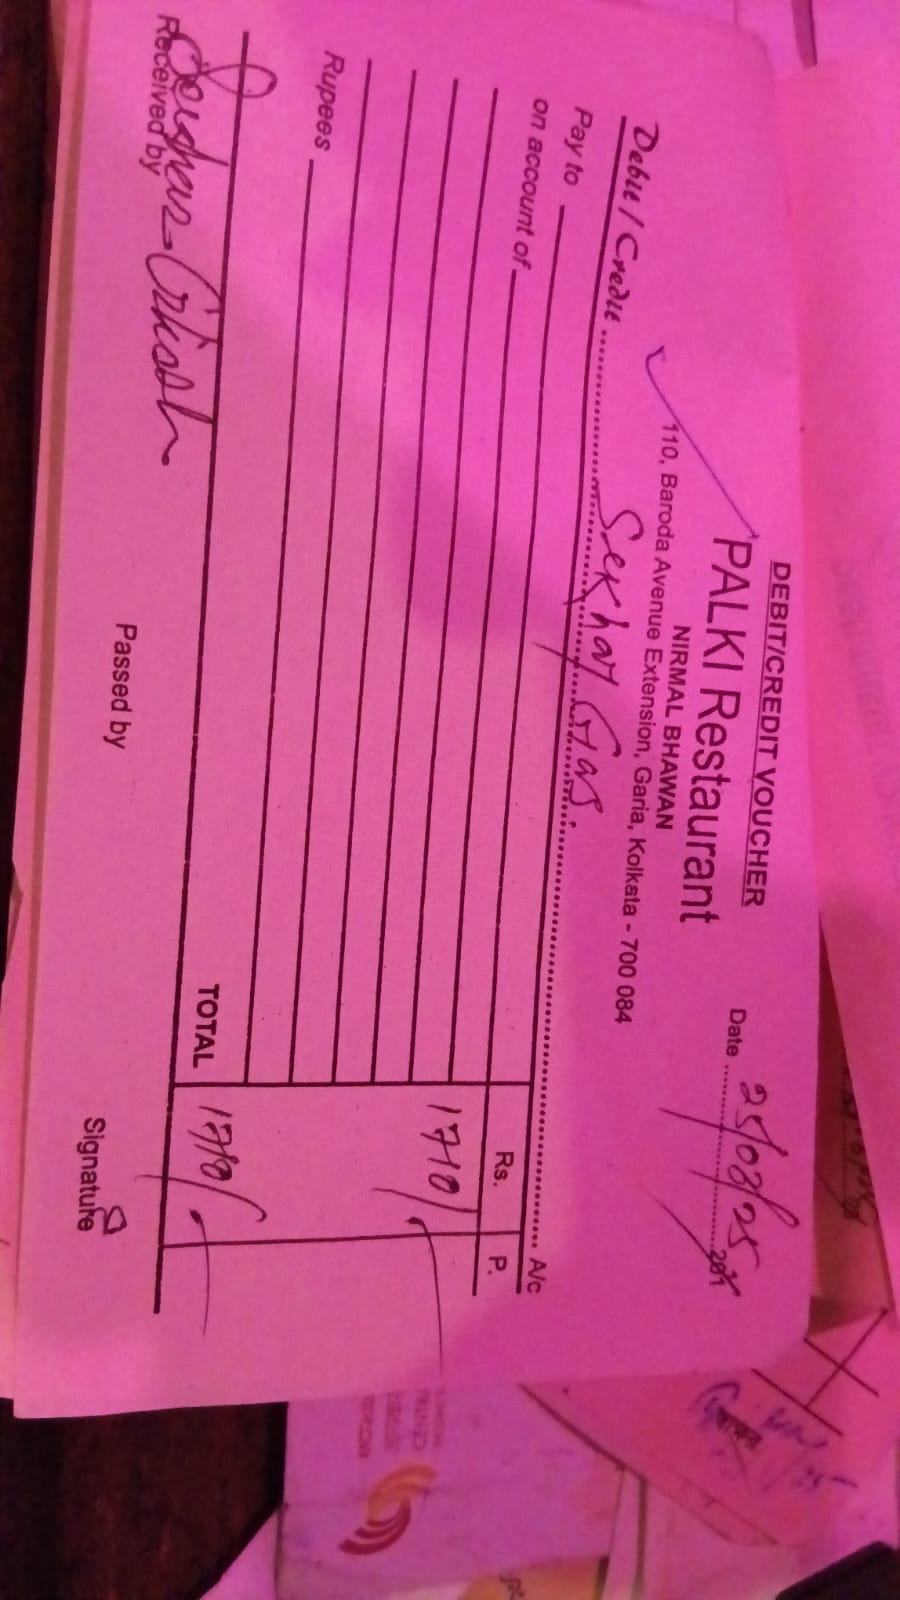 DEBIT/CREDIT VOUCHER
PALKI Restaurant
NIRMAL BHAWAN
110, Baroda Avenue Extension, Garia, Kolkata - 700 084
Date 25/03/25 201
Debit / Credit Sekhar Gas. A/c
Pay to
on account of
Rs. P.
1710/-
Rupees
TOTAL 1710/-
Received by Passed by Signature